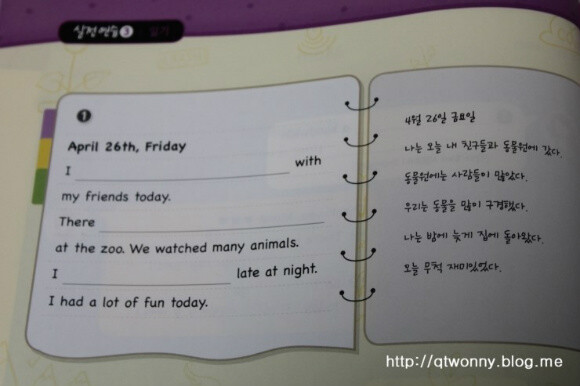 실전연습 3 일기
1
April 26th, Friday
I ______ with
my friends today.
There ______
at the zoo. We watched many animals.
I ______ late at night.
I had a lot of fun today.
4월 26일 금요일
나는 오늘 내 친구들과 동물원에 갔다.
동물원에는 사람들이 많았다.
우리는 동물을 많이 구경했다.
나는 밤에 늦게 집에 돌아왔다.
오늘 무척 재미있었다.
http://qtwonny.blog.me